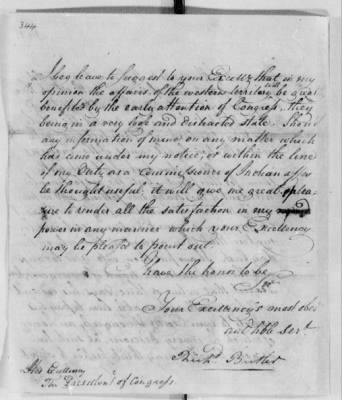 344
I beg leave to suggest to your Excellz. that in my
opinion the affairs of the western territory will be great
benefited by the early attention of Congress, they
being in a very loose and distracted state. Should
any information of mine on any matter which
has come under my notice, or within the line
of my Duty as a Commissioner of Indian affrs
be thought usefull, it will give me great plea-
sure to render all the satisfaction in my
power in any manner which your Excellency
may be pleased to point out.
I have the honor to be
Sir
Your Excellency's most obt
and hble Servt
Richd. Butler
His Excellency
The President of Congress